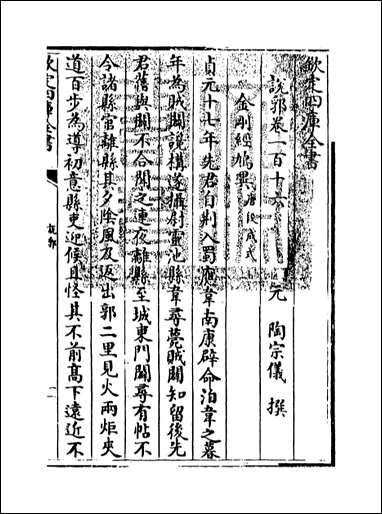 欽定四庫全書
説郛卷一百十六
元 陶宗儀 撰
金剛經鳩異 唐段成式
貞元十七年先君自荆入蜀應韋南康辟命洎韋之暮
年為賊闢䜛構遂攝尉靈池縣韋尋薨賊闢知留後先
君舊與闢不合聞之連夜離縣至城東門闢尋有帖不
令諸縣官離縣其夕陰風及返出郭二里見火兩炬夾
道百步為導初意縣吏迎候且怪其不前髙下遠近不
欽定四庫全書
説郛